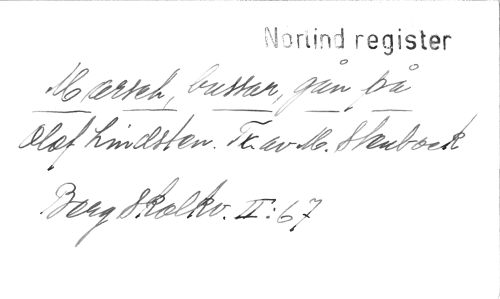 Norlind register
Marsch, bussar, gån på
Olof Lindsten. Tr. av M. Stenbock
Berg Skolkv. II:67